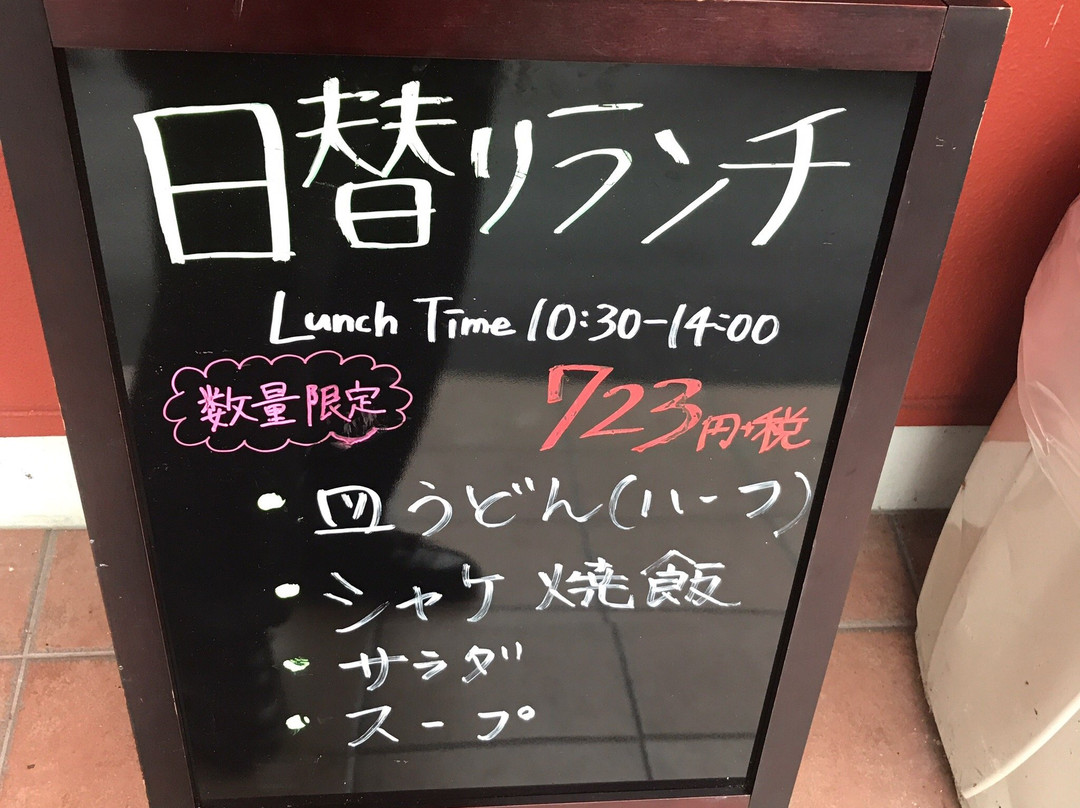 日替リランチ
Lunch Time 10:30-14:00
数量限定
723円+税
・皿うどん(ハーフ)
・シャケ焼飯
・サラダ
・スープ